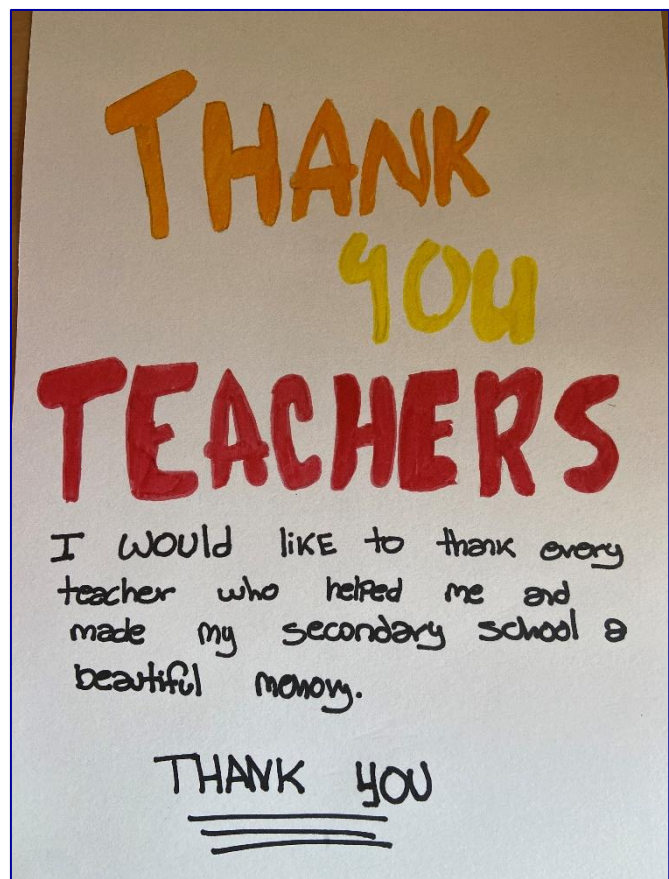 THANK
YOU
TEACHERS
I WOULD liKE to thank every
teacher who helped me and
made my secondary school a
beautiful memory.
THANK YOU